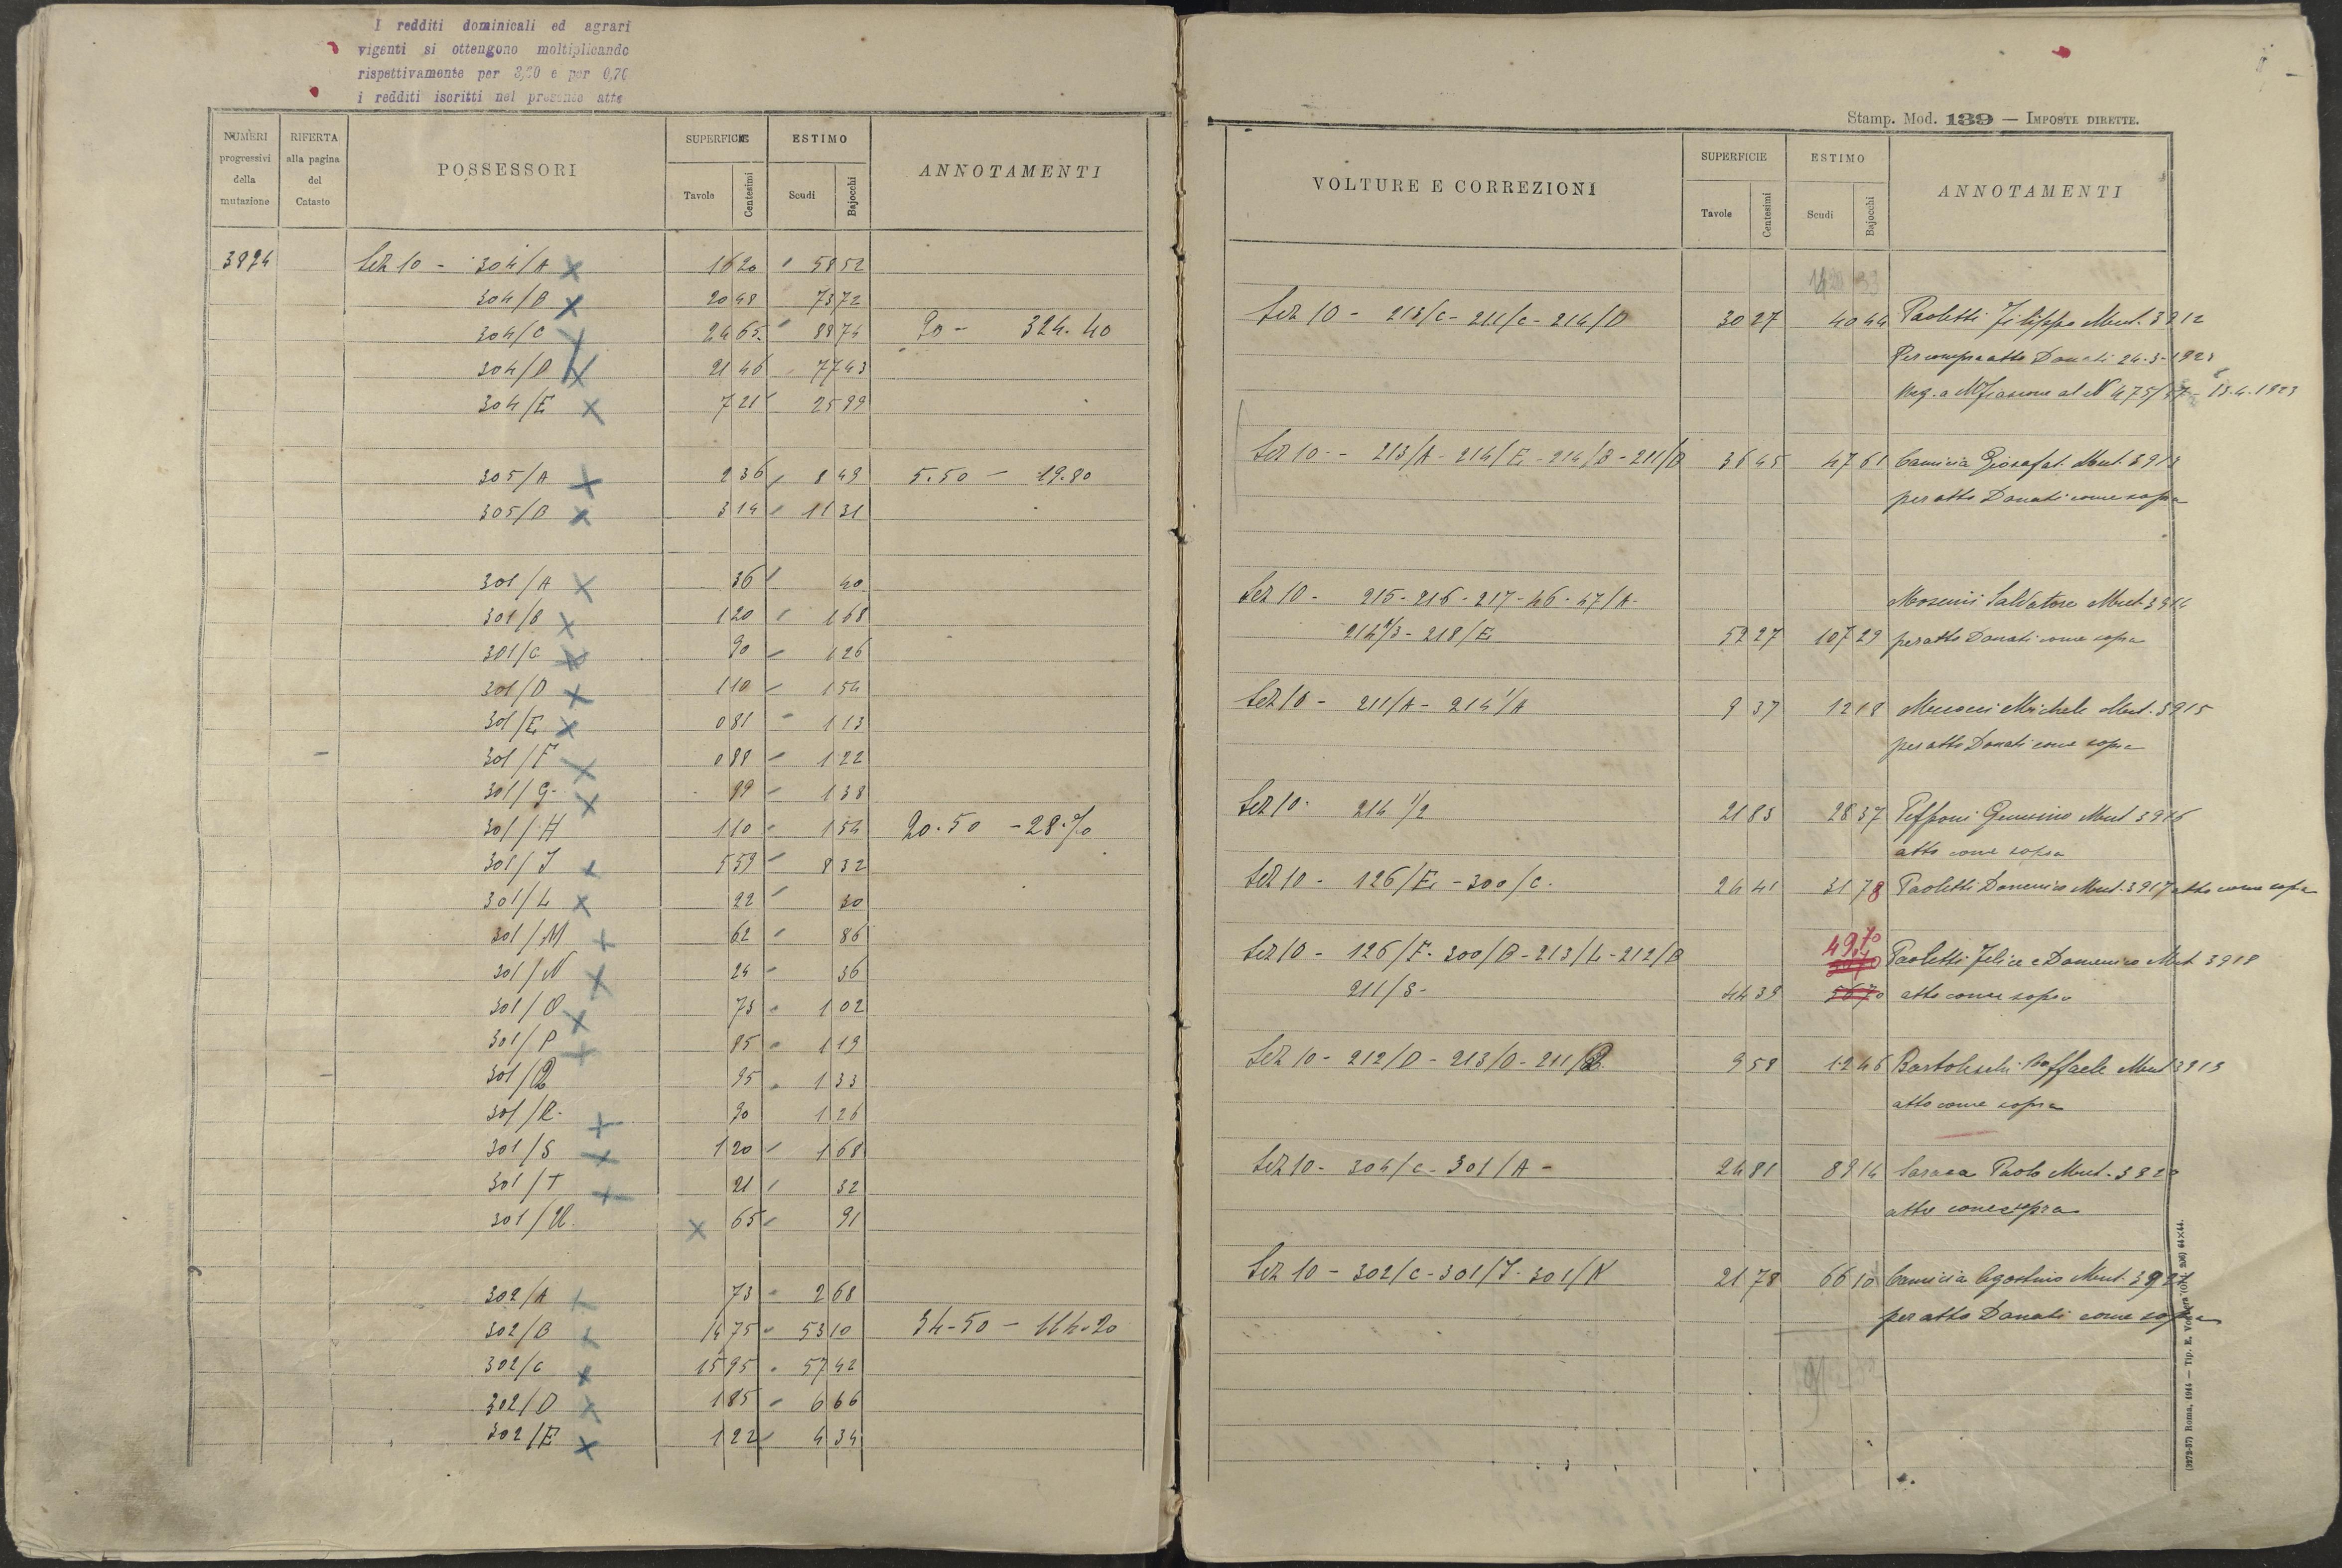 I redditi dominicali ed agrari
vigenti si ottengono moltiplicando
rispettivamente per e per 0,70
i redditi iscritti nel presente atto
NUMERI progressivi della mutazione
RIFERTA alla pagina del Catasto
POSSESSORI
SUPERFICIE
Tavole Centesimi
ESTIMO
Scudi Bajocchi
ANNOTAMENTI
3824 Sez 10 - 304/A 16 20 58 52
304/B 20 48 73 72
304/C 24 65 88 74 90 - 324.40
304/D 21 46 77 43
304/E 7 21 25 99
305/A 2 36 8 49 5.50 - 19.80
305/B 3 14 11 31
301/A 36 40
301/B 1 20 1 68
301/C 90 1 26
301/D 1 10 1 54
301/E 0 81 1 13
301/F 0 88 1 22
301/G 99 1 38
301/H 1 10 1 54 20.50 - 28.70
301/J 5 59 8 32
301/L 22 30
301/M 62 86
301/N 24 36
301/O 73 1 02
301/P 85 1 19
301/Q 95 1 33
301/R 90 1 26
301/S 1 20 1 68
301/T 21 32
301/U 65 91
302/A 73 2 68
302/B 14 75 53 10 34-50 - 114.20
302/C 15 95 57 42
302/D 1 85 6 66
302/E 1 22 4 34
Stamp. Mod. 139 — IMPOSTE DIRETTE.
VOLTURE E CORREZIONI
SUPERFICIE
Tavole Centesimi
ESTIMO
Scudi Bajocchi
ANNOTAMENTI
Sez 10 - 213/C - 211/C - 214/D 30 27 40 44 Paoletti Filippo Mut. 3912
Per compra atto Donati 24-3-1923
Reg. a Mfiascone al N 475/ 13.4.1923
Sez 10 - 213/A - 214/E - 214/B - 211/B 36 45 47 61 Camicia Giosafat Mut. 3913
per atto Donati come sopra
Sez 10 - 215 - 216 - 217 - 46 - 47/A - Salvatore Mut 3914
218/E 52 27 107 29 per atto Donati come sopra
Sez 10 - 211/A - 214 1/A 9 37 12 18 Michele Mut. 3915
per atto Donati come sopra
Sez 10 - 214 1/2 21 83 28 37 Mut 3916
atto come sopra
Sez 10 - 126/E - 300/C. 24 41 31 78 Paoletti Domenico Mut. 3917 atto come sopra
49.70
Sez 10 - 126/F - 300/B - 213/L - 212/B Paoletti Felice e Domenico Mut 3918
211/S - 44 39 atto come sopra
Sez 10 - 212/D - 213/D - 211/ 9 58 12 46 Raffaele Mut 3919
atto come sopra
Sez 10 - 304/C - 301/A - 24 81 89 14 Paolo Mut.
atto come sopra
Sez 10 - 302/C - 301/J - 301/N 21 78 66 10 Camicia Agostino Mut. 3921
per atto Donati come sopra